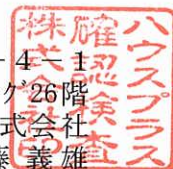 -4-1
グ26階
式会社
藤 義雄
ハウスプラス
確認検査
株式会社印